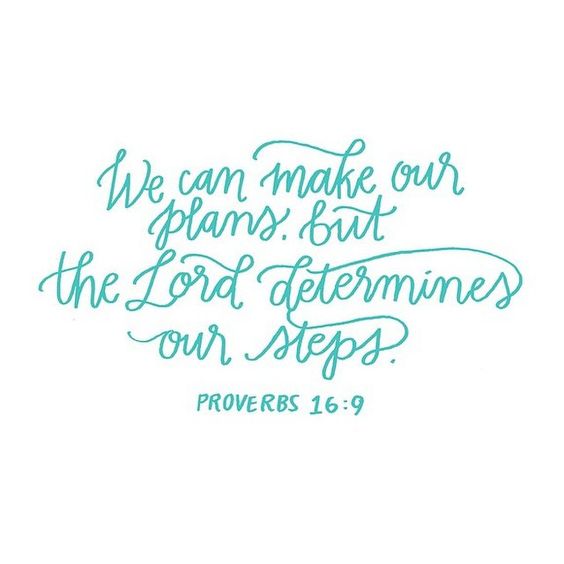 We can make our
plans, but
the Lord determines
our steps.
PROVERBS 16:9